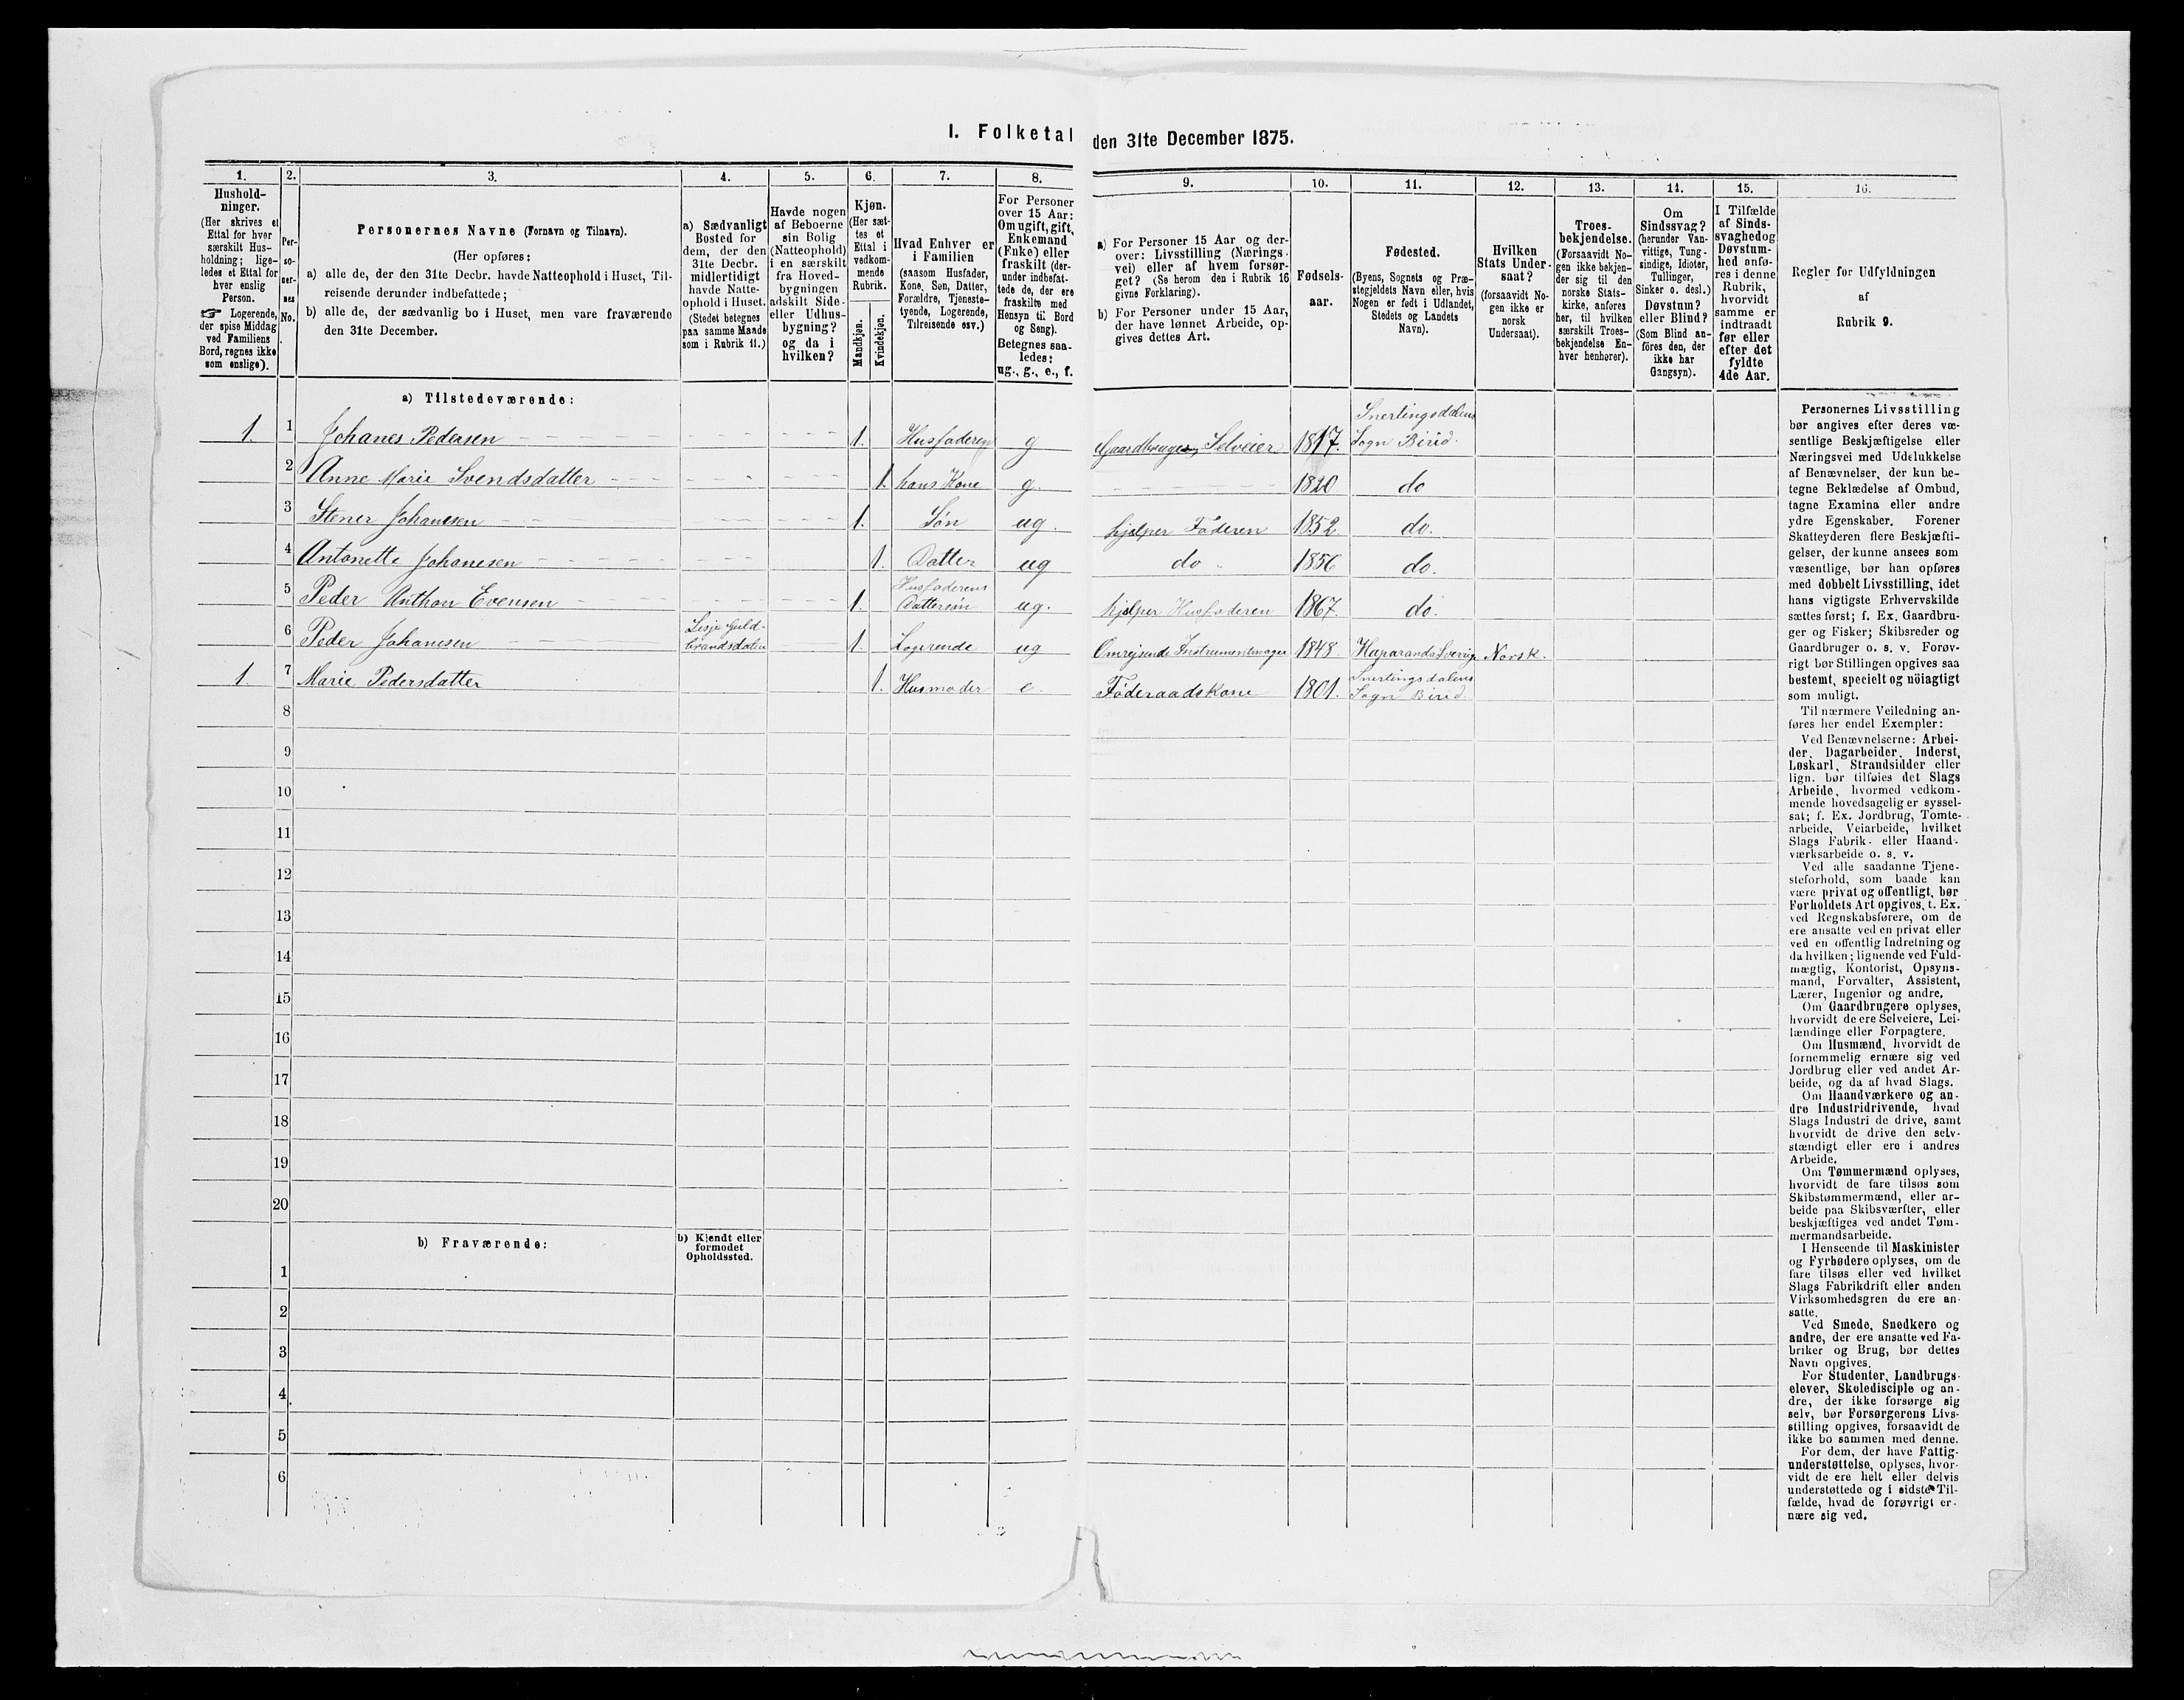 I. Folketal den 31te December 1875.
1. 2. 3. 4. 5. 6. 7. 8. 9. 10. 11. 12. 13. 14. 15. 16.
Hushold-
ninger.
(Her skrives et
Ettal for hver
særskilt Hus-
holdning; lige-
ledes et Ettal for
hver enslig
Person.
☞ Logerende,
der spise Middag
ved Familiens
Bord, regnes ikke
som enslige).
Per-
so-
ner-
nes
No.
Personernes Navne (Fornavn og Tilnavn).
(Her opføres:
a) alle de, der den 31te Decbr. havde Natteophold i Huset, Til-
reisende derunder indbefattede;
b) alle de, der sædvanlig bo i Huset, men vare fraværende
den 31te December.
a) Sædvanligt
Bosted for
dem, der den
31te Decbr.
midlertidigt
havde Natte-
ophold i Huset.
(Stedet betegnes
paa samme Maade
som i Rubrik 11.)
Havde nogen
af Beboerne
sin Bolig
(Natteophold)
i en særskilt
fra Hoved-
bygningen
adskilt Side-
eller Udhus-
bygning?
og da i
hvilken?
Kjøn.
(Her sæt-
tes et
Ettal i
vedkom-
mende
Rubrik.
Mandkjøn.
Kvindekjøn.
Hvad Enhver er
i Familien
(saasom Husfader,
Kone, Søn, Datter,
Forældre, Tjeneste-
tyende, Logerende,
Tilreisende osv.)
For Personer
over 15 Aar:
Om ugift, gift,
Enkemand
(Enke) eller
fraskilt (der-
under indbefat-
tede de, der ere
fraskilte med
Hensyn til Bord
og Seng).
Betegnes saa-
ledes:
ug., g., e., f.
a) For Personer 15 Aar og der-
over: Livsstilling (Nærings-
vei) eller af hvem forsør-
get? (Se herom den i Rubrik 16
givne Forklaring).
b) For Personer under 15 Aar,
der have lønnet Arbeide, op-
gives dettes Art.
Fødsels-
aar.
Fødested.
(Byens, Sognets og Præ-
stegjeldets Navn eller, hvis
Nogen er født i Udlandet,
Stedets og Landets
Navn).
Hvilken
Stats Under-
saat?
(forsaavidt No-
gen ikke er
norsk
Undersaat).
Troes-
bekjendelse.
(Forsaavidt No-
gen ikke bekjen-
der sig til den
norske Stats-
kirke, anføres
her, til hvilken
særskilt Troes-
bekjendelse En-
hver henhører).
Om
Sindssvag?
(herunder Van-
vittige, Tung-
sindige, Idioter,
Tullinger,
Sinker o. desl.)
Døvstum?
eller Blind?
(Som Blind an-
føres den, der
ikke har
Gangsyn).
I Tilfælde
af Sinds-
svaghed og
Døvstum-
hed anfø-
res i denne
Rubrik,
hvorvidt
samme er
indtraadt
før eller
efter det
fyldte
4de Aar.
Regler for Udfyldningen
af
Rubrik 9.
a) Tilstedeværende:
1. 1 Johanes Pedersen 1. Husfaderen g Gaardbruger, Selveier 1817. Snertingsdalens Sogn Birid.
2 Anne Marie Svendsdatter 1. hans Kone g. 1820 do
3 Stener Johanesen 1. Søn ug. hjelper Faderen 1852 do.
4 Antonette Johanesen 1. Datter ug do 1856 do.
5 Peder Anthon Evensen 1. Husfaderens Dattersøn ug. hjelper Husfaderen 1867. do
6 Peder Johanesen Lesje Guld-brandsdalen 1. Logerende ug Omrejsende Instrumentmager 1848. Haparanda Sverige Norsk.
1. 7 Marie Pedersdatter 1. Husmoder e. Føderaadskone 1801. Snertingsdalens Sogn Birid
8
9
10
11
12
13
14
15
16
17
18
19
20
b) Fraværende:
b) Kjendt eller
formodet
Opholdssted.
1
2
3
4
5
6
Personernes Livsstilling
bør angives efter deres væ-
sentlige Beskjæftigelse eller
Næringsvei med Udelukkelse
af Benævnelser, der kun be-
tegne Beklædelse af Ombud,
tagne Examina eller andre
ydre Egenskaber. Forener
Skatteyderen flere Beskjæfti-
gelser, der kunne ansees som
væsentlige, bør han opføres
med dobbelt Livsstilling, idet
hans vigtigste Erhvervskilde
sættes først; f. Ex. Gaardbru-
ger og Fisker; Skibsreder og
Gaardbruger o. s. v. Forøv-
rigt bør Stillingen opgives saa
bestemt, specielt og nöiagtigt
som muligt.
Til nærmere Veiledning an-
føres her endel Exempler:
Ved Benævnelserne: Arbei-
der, Dagarbeider, Inderst,
Løskarl, Strandsidder eller
lign. bør tilføies det Slags
Arbeide, hvormed vedkom-
mende hovedsagelig er syssel-
sat; f. Ex. Jordbrug, Tomte-
arbeide, Veiarbeide, hvilket
Slags Fabrik- eller Haand-
værksarbeide o. s. v.
Ved alle saadanne Tjene-
steforhold, som baade kan
være privat og offentligt, bør
Forholdets Art opgives, t. Ex.
ved Regnskabsførere, om de
ere ansatte ved en privat eller
ved en offentlig Indretning og
da hvilken; lignende ved Fuld-
mægtig, Kontorist, Opsyns-
mand, Forvalter, Assistent,
Lærer, Ingeniør og andre.
Om Gaardbrugere oplyses,
hvorvidt de ere Selveiere, Lei-
lændinge eller Forpagtere.
Om Husmænd, hvorvidt de
fornemmelig ernære sig ved
Jordbrug eller ved andet Ar-
beide, og da af hvad Slags.
Om Haandværkere og an-
dre Industridrivende, hvad
Slags Industri de drive, samt
hvorvidt de drive den selv-
stændigt eller ere i andres
Arbeide.
Om Tømmermænd oplyses,
hvorvidt de fare tilsøs som
Skibstømmermænd, eller ar-
beide paa Skibsværfter, eller
beskjæftiges ved andet Tøm-
mermandsarbeide.
I Henseende til Maskinister
og Fyrbødere oplyses, om de
fare tilsøs eller ved hvilket
Slags Fabrikdrift eller anden
Virksomhedsgren de ere an-
satte.
Ved Smede, Snedkere og
andre, der ere ansatte ved Fa-
briker og Brug, bør dettes
Navn opgives.
For Studenter, Landbrugs-
elever, Skoledisciple og an-
dre, der ikke forsørge sig
selv, bør Forsørgerens Livs-
stilling opgives, forsaavidt de
ikke bo sammen med denne.
For dem, der have Fattig-
understøttelse, oplyses, hvor-
vidt de ere helt eller delvis
understøttede og i sidste Til-
fælde, hvad de forøvrigt er-
nære sig ved.